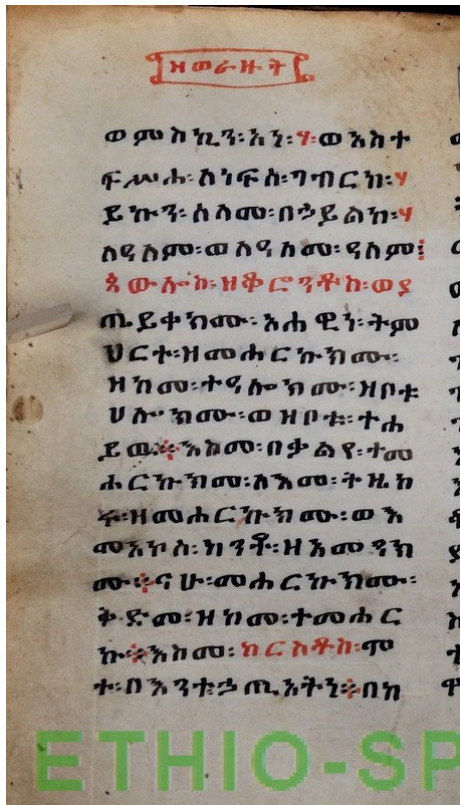 ዘወራዙት
ወምስኪን፡አነ፡ሃ፡ወአስተ
ፍሥሐ፡ለነፍሰ፡ገብርከ፡ሃ
ይኩን፡ሰላመ፡በኃይልከ፡ሃ
ለዓለም፡ወለዓለመ፡ዓለም፤
ጳውሎስ፡ዘቆሮንቶስ፡ወያ
ጤይቀክሙ፡አሐዊነ፡ትም
ህርተ፡ዘመሐርኩክሙ፡
ዘከመ፡ተዓሎክሙ፡ዘቦቱ
ሀሎክሙ፡ወዘቦቱ፡ተሐ
ይዉ፨እስመ፡በቃልየ፡ተመ
ሐርኩክሙ፡ለእመ፡ትዜከ
ሩ፡ዘመሐርኩክሙ፡ወእ
መአኮሰ፡ከንቶ፡ዘአመንክ
ሙ፨ናሁ፡መሐርኩክሙ፡
ቅድመ፡ዘከመ፡ተመሐር
ኩ፨እስመ፡ክርስቶስ፡ሞ
ተ፡በእንተ፡ኃጢአትነ፨በከ
ETHIO-SP